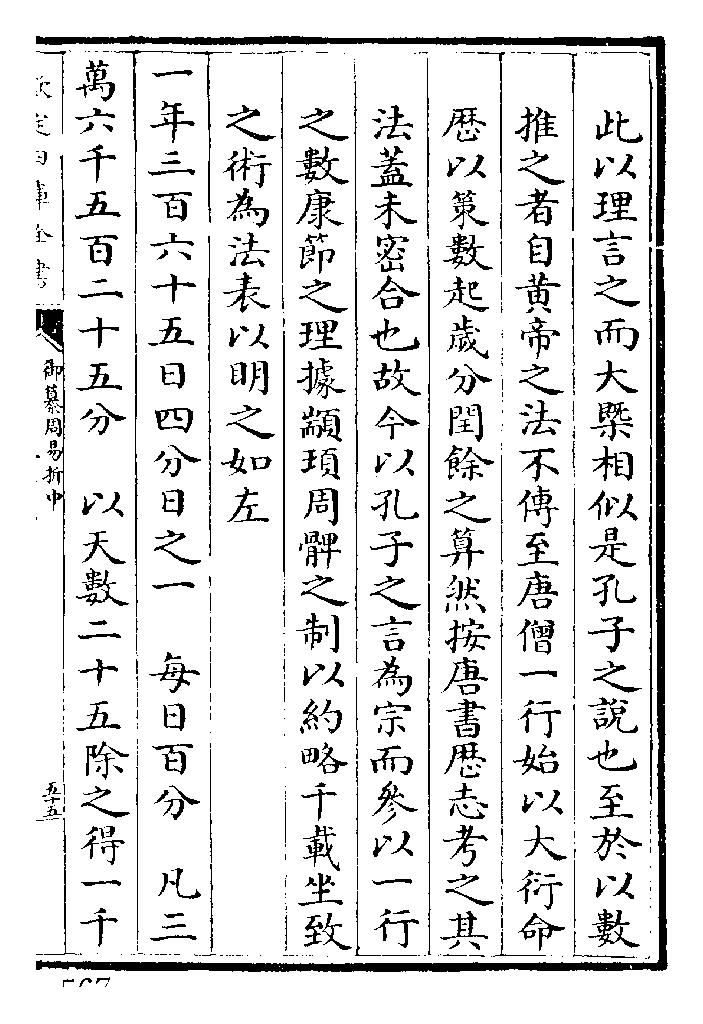 此以理言之而大槩相似是孔子之說也至於以數
推之者自黄帝之法不傳至唐僧一行始以大衍命
厯以策數起歲分閏餘之算然按唐書厯志考之其
法蓋未密合也故今以孔子之言為宗而參以一行
之數康節之理據顓頊周髀之制以約略千載坐致
之術為法表以明之如左
一年三百六十五日四分日之一　每日百分　凡三
萬六千五百二十五分　以天數二十五除之得一千
欽定四庫全書
御纂周易折中
五十五
567